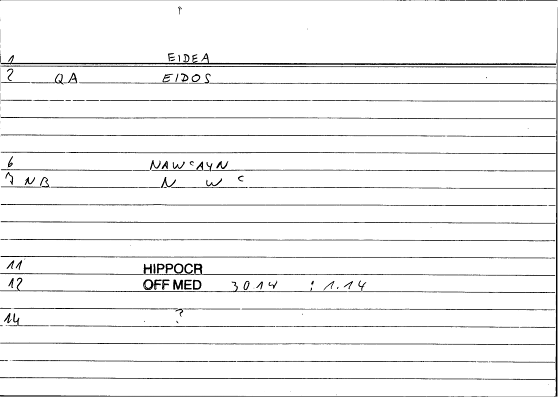 1 EIDEA
2 QA EIDOS
6 NAWCAYN
7 NB N W C
11 HIPPOCR
12 OFF MED 3014 : 1.14
14 ?